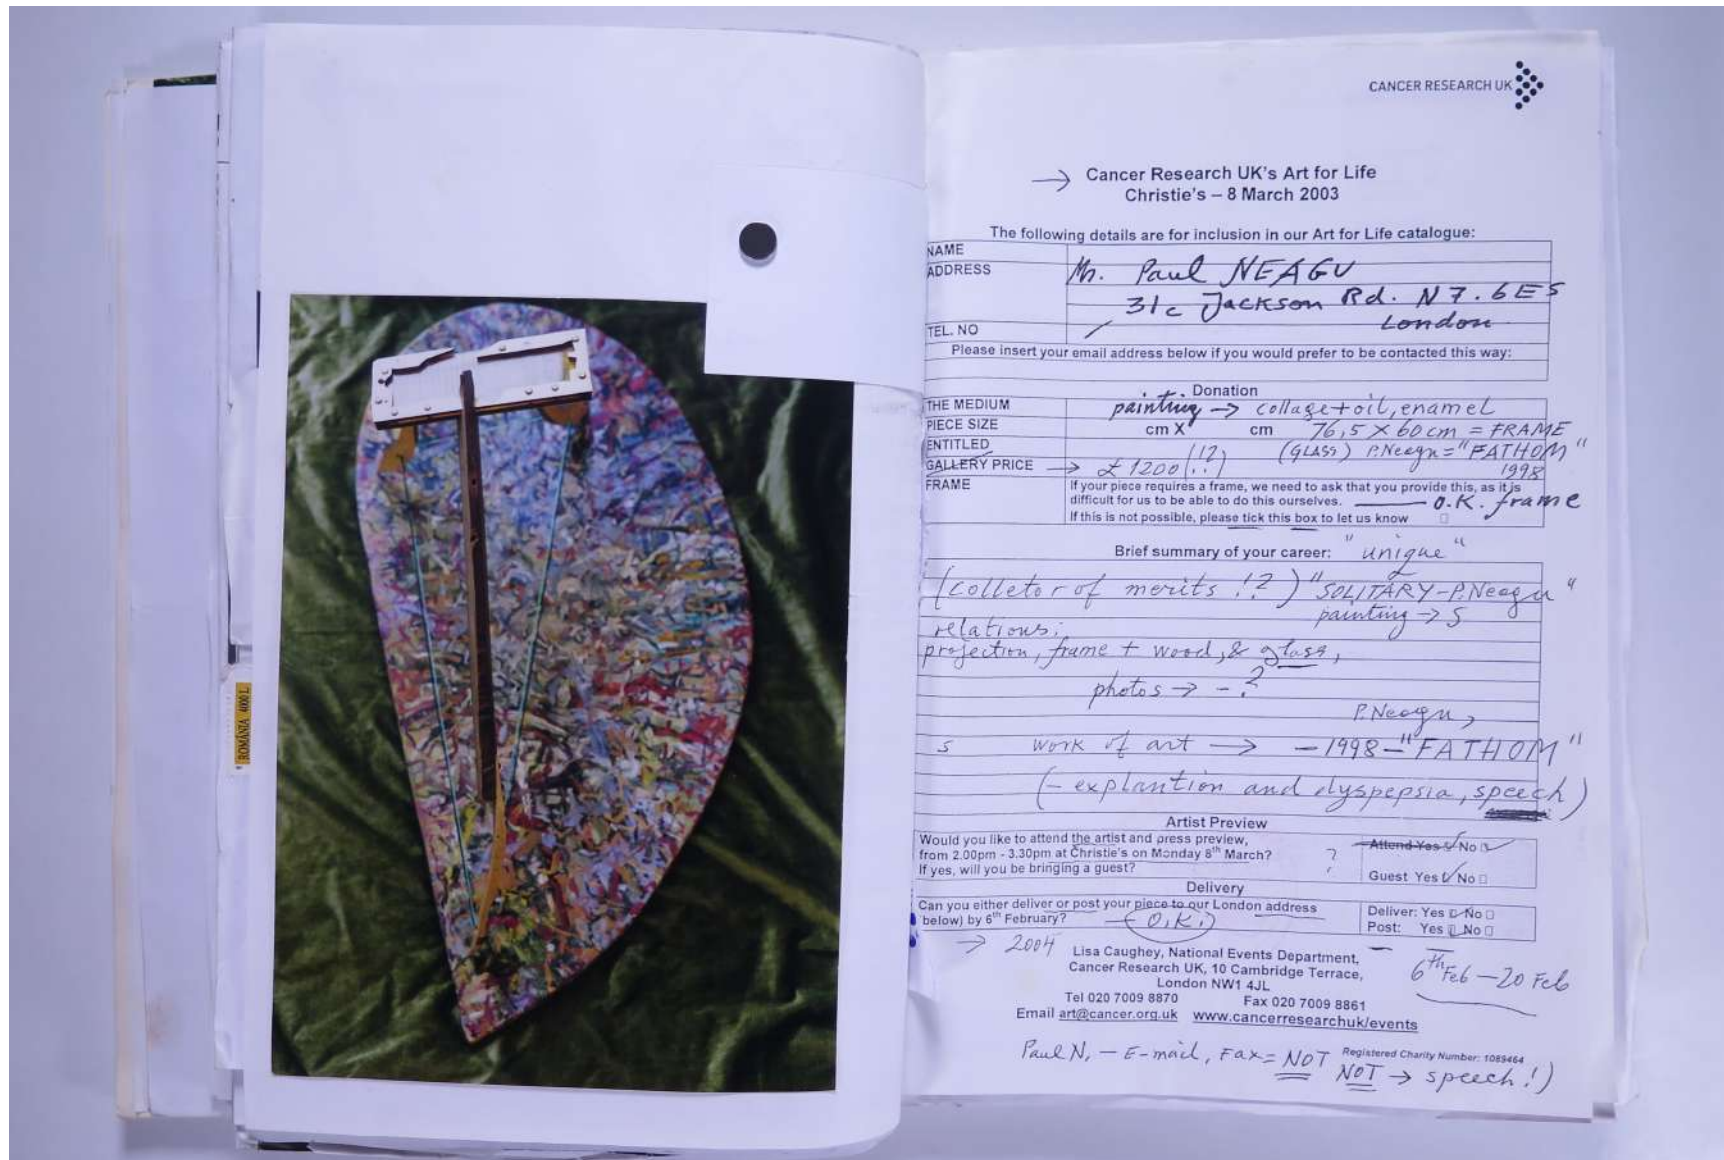 ROMÂNIA 4000 L
CANCER RESEARCH UK
→ Cancer Research UK's Art for Life
Christie's – 8 March 2003
The following details are for inclusion in our Art for Life catalogue:
NAME
ADDRESS Mr. Paul NEAGU
31c Jackson Rd. N7. 6ES
London
TEL. NO
Please insert your email address below if you would prefer to be contacted this way:
Donation
THE MEDIUM painting → collage + oil, enamel
PIECE SIZE cm X cm 76,5 X 60 cm = FRAME
ENTITLED (GLASS) P.Neagu = "FATHOM"
GALLERY PRICE → £1200 (!?) 1998
FRAME If your piece requires a frame, we need to ask that you provide this, as it is
difficult for us to be able to do this ourselves. — O.K. frame
If this is not possible, please tick this box to let us know
Brief summary of your career: "unique"
(colletor of merits !?) "SOLITARY – P.Neagu"
painting → S
relations:
projection, frame + wood, & glass,
photos → – ?
P.Neagu,
s work of art → – 1998 – "FATHOM"
(– explantion and dyspepsia, speech)
Artist Preview
Would you like to attend the artist and press preview,
from 2.00pm - 3.30pm at Christie's on Monday 8th March? ? Attend Yes No
If yes, will you be bringing a guest? Guest Yes No
Delivery
Can you either deliver or post your piece to our London address Deliver: Yes No
below) by 6th February? – (O.K.) Post: Yes No
→ 2004
Lisa Caughey, National Events Department,
Cancer Research UK, 10 Cambridge Terrace, 6th Feb – 20 Feb
London NW1 4JL
Tel 020 7009 8870 Fax 020 7009 8861
Email art@cancer.org.uk www.cancerresearchuk/events
Registered Charity Number: 1089464
Paul N, – E-mail, Fax = NOT
NOT → speech!)